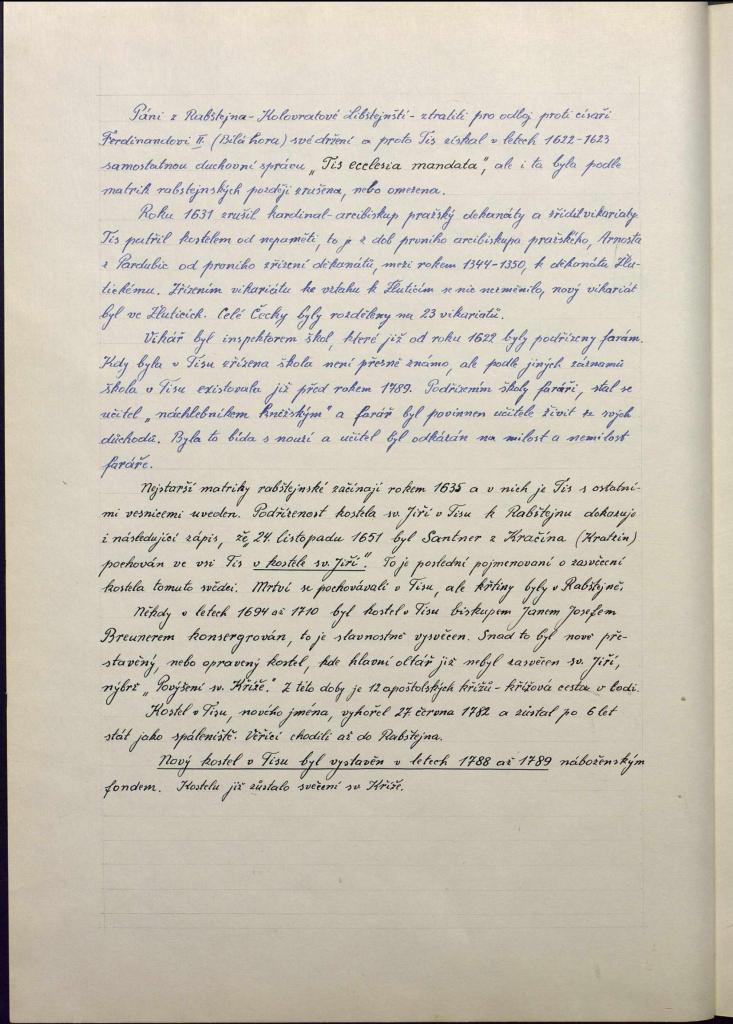 Páni z Rabštejna - Kolovratové Libštejnští - ztratili pro odboj proti císaři
Ferdinandovi II. (Bílá hora) své držení a proto Tis získal v letech 1622-1623
samostatnou duchovní správu „Tis ecclesia mandata", ale i ta byla podle
matrik rabštejnských později zrušena, nebo omezena.
Roku 1631 zrušil kardinal-arcibiskup pražský dekanáty a zřídil vikariaty.
Tis patřil kostelem od nepaměti, to je z dob prvního arcibiskupa pražského, Arnošta
z Pardubic od prvního zřízení děkanátů, mezi rokem 1344-1350, k děkanátu Žlu-
tickému. Zřízením vikariátu ke vztahu k Žluticím se nic nezměnilo, nový vikariát
byl ve Žluticích. Celé Čechy byly rozděleny na 23 vikariatů.
Vikář byl inspektorem škol, které již od roku 1622 byly podřízeny farám.
Kdy byla v Tisu zřízena škola není přesně známo, ale podle jiných záznamů
škola v Tisu existovala již před rokem 1789. Podřízením školy faráři, stal se
učitel „náchlebníkem kněžským" a farář byl povinnen učitele živit ze svých
důchodů. Byla to bída s nouzí a učitel byl odkázán na milost a nemilost
faráře.
Nejstarší matriky rabštejnské začínají rokem 1635 a v nich je Tis s ostatní-
mi vesnicemi uveden. Podřízenost kostela sv. Jiří v Tisu k Rabštejnu dokazuje
i následující zápis, že „24. listopadu 1651 byl Santner z Kračína (Kratzin)
pochován ve vsi Tis v kostele sv. Jiří". To je poslední pojmenovaní o zasvěcení
kostela tomuto světci. Mrtví se pochovávali v Tisu, ale křtiny byly v Rabštejně.
Někdy v letech 1694 až 1710 byl kostel v Tisu biskupem Janem Josefem
Breunerem konsergrován, to je slavnostně vysvěcen. Snad to byl nově pře-
stavěný, nebo opravený kostel, kde hlavní oltář již nebyl zasvěcen sv. Jiří,
nýbrž „Povýšení sv. Kříže." Z této doby je 12 apoštolských křížů - křížová cesta v lodi.
Kostel v Tisu, nového jména, vyhořel 27. června 1782 a zůstal po 6 let
stát jako spáleniště. Věřící chodili až do Rabštejna.
Nový kostel v Tisu byl vystavěn v letech 1788 až 1789 náboženským
fondem. Kostelu již zůstalo svěcení sv. Kříže.